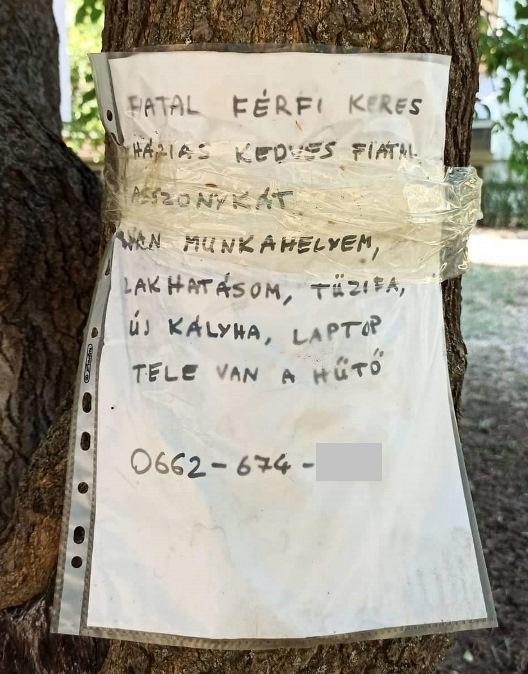 FIATAL FÉRFI KERES
HÁZIAS KEDVES FIATAL
ASSZONYKÁT
VAN MUNKAHELYEM,
LAKHATÁSOM, TŰZIFA,
ÚJ KÁLYHA, LAPTOP
TELE VAN A HŰTŐ
0662-674-